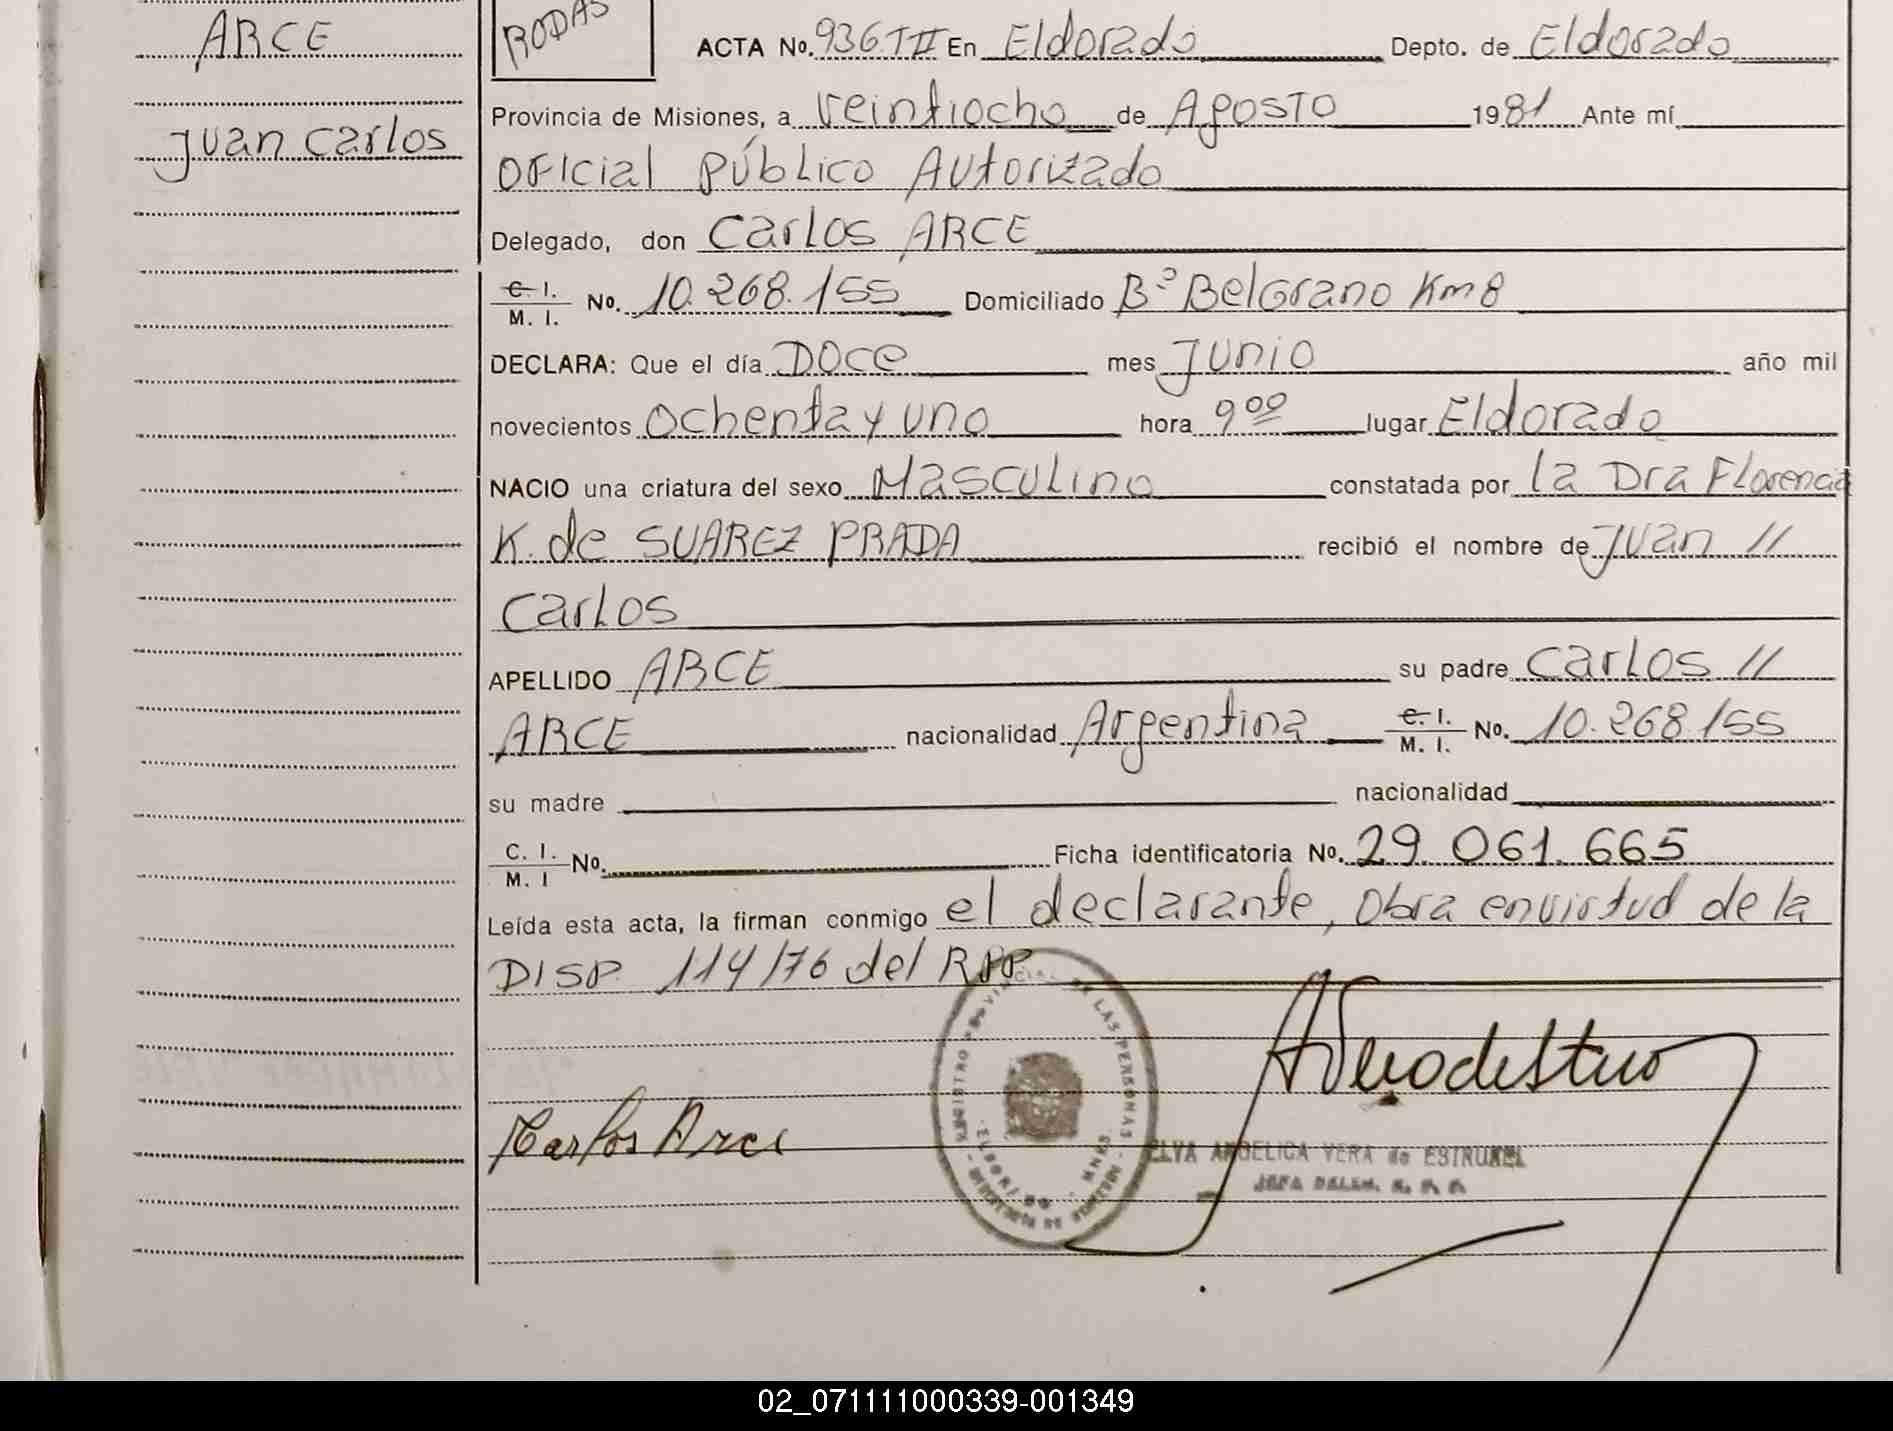 ARCE
Juan Carlos
RODAS
ACTA No. 936 T II En Eldorado Depto. de Eldorado
Provincia de Misiones, a veintiocho de Agosto 1981 Ante mí
OFICIAL PÚBLICO AUTORIZADO
Delegado, don Carlos ARCE
C. I. / M. I. No. 10.268.155 Domiciliado Bº Belgrano Km 8
DECLARA: Que el día DOCE mes Junio año mil
novecientos ochenta y uno hora 9 00 lugar Eldorado
NACIO una criatura del sexo Masculino constatada por la Dra Florencia
K. de SUAREZ PRADA recibió el nombre de Juan //
Carlos
APELLIDO ARCE su padre Carlos //
ARCE nacionalidad Argentina C. I. / M. I. No. 10.268.155
su madre nacionalidad
C. I. / M. I No. Ficha identificatoria No. 29.061.665
Leída esta acta, la firman conmigo el declarante, Obra en virtud de la
DISP. 114/76 del RPP
REGISTRO PROVINCIAL DE LAS PERSONAS
Carlos Arce
ELVA ANGELICA VERA de ESTRUXEL
JEFA DELEG. R. P. P.
02_071111000339-001349